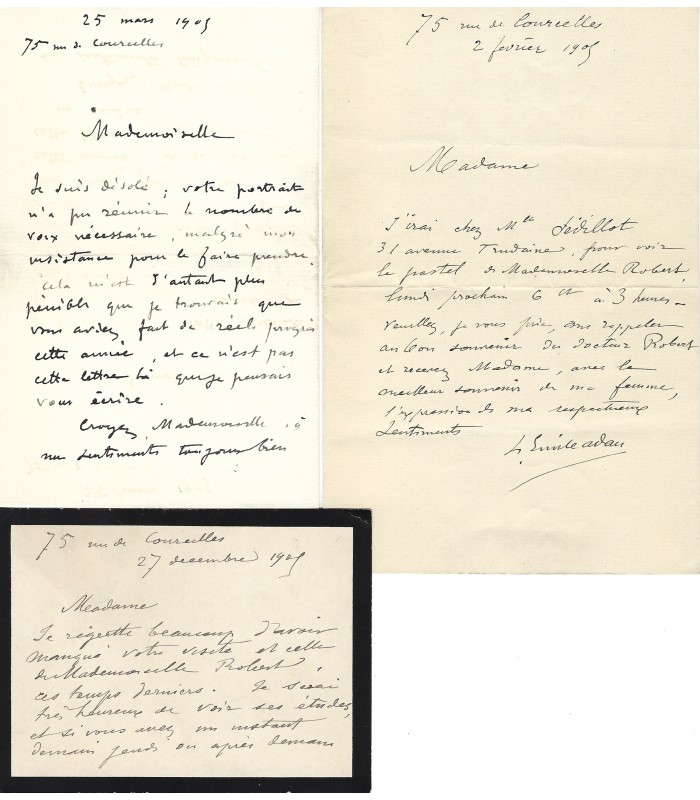 25 mars 1905
75 rue de Courcelles
Mademoiselle
Je suis désolé ; votre portrait
n'a pu réunir le nombre de
voix nécessaire, malgré mon
insistance pour le faire prendre.
cela m'est d'autant plus
pénible que je trouvais que
vous aviez fait de réels progrès
cette année, et ce n'est pas
cette lettre là que je pensais
vous écrire.
Croyez, Mademoiselle, à
mes sentiments toujours bien
75 rue de Courcelles
2 février 1905
Madame
J'irai chez Mlle Sédillot
31 avenue Trudaine, pour voir
le pastel de Mademoiselle Robert,
lundi prochain 6 ct à 3 heures -
veuillez, je vous prie, me rappeler
au bon souvenir du docteur Robert
et recevez Madame, avec le
meilleur souvenir de ma femme,
l'expression de mes respectueux
sentiments
L. Emile adan
75 rue de Courcelles
27 decembre 1905
Madame
Je regrette beaucoup d'avoir
manqué votre visite et celle
de Mademoiselle Robert,
ces temps derniers. Je serai
très heureux de voir ses études,
et si vous avez un instant
demain jeudi ou après demain